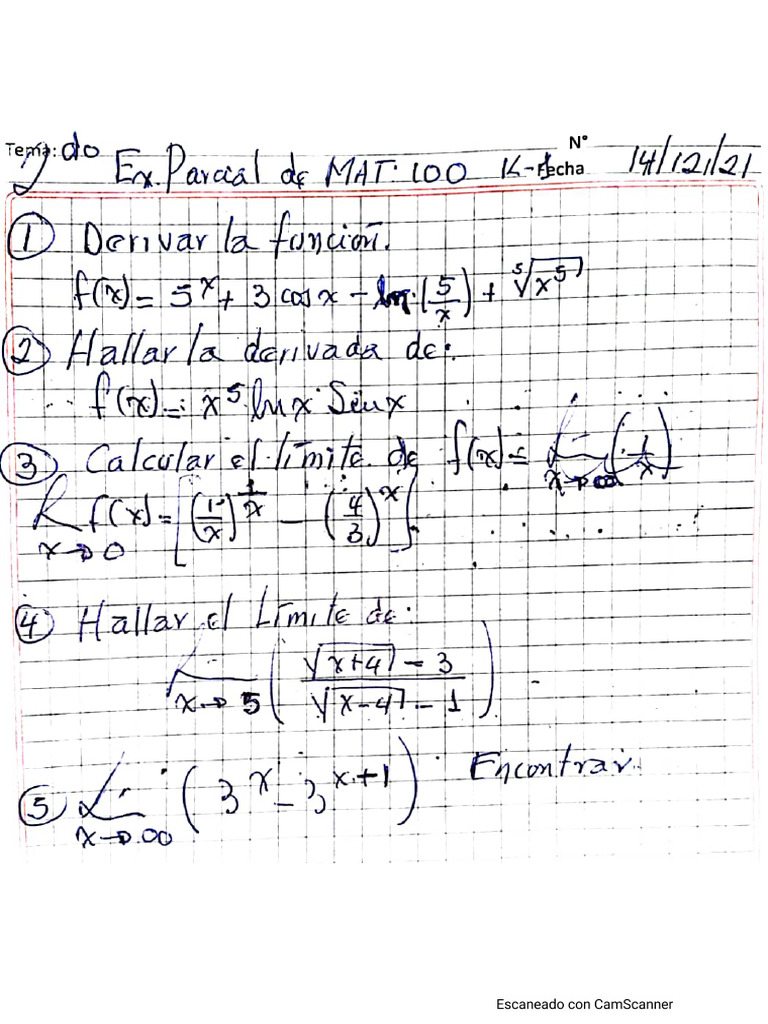 Tema: do Ex. Parcial de MAT: 100 K-1 N° Fecha 14/12/21
① Derivar la función.
f(x) = 5^x + 3 cos x - ln (5/x) + ⁵√(x^5)
② Hallar la derivada de:
f(x) = x^5 ln x Sen x
③ Calcular el límite de f(x) = L (1/x) x→∞
L x→0 f(x) = [(1/x)^(1/x) - (4/3)^x]
④ Hallar el Límite de:
L x→5 ((√(x+4) - 3)/(√(x-4) - 1))
⑤ L x→∞ (3^x - 3^(x+1)) Encontrar.
Escaneado con CamScanner